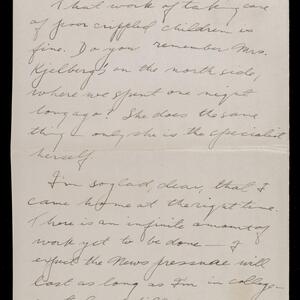 That work of taking care
of poor crippled children is
fine. Do you remember Mrs.
Kjelberg's on the north side,
where we spent one night
long ago? She does the same
thing – only she is the specialist
herself.
I'm so glad, dear, that I
came home at the right time.
There is an infinite amount of
work yet to be done — I
expect the News pressure will
last as long as I'm in college –